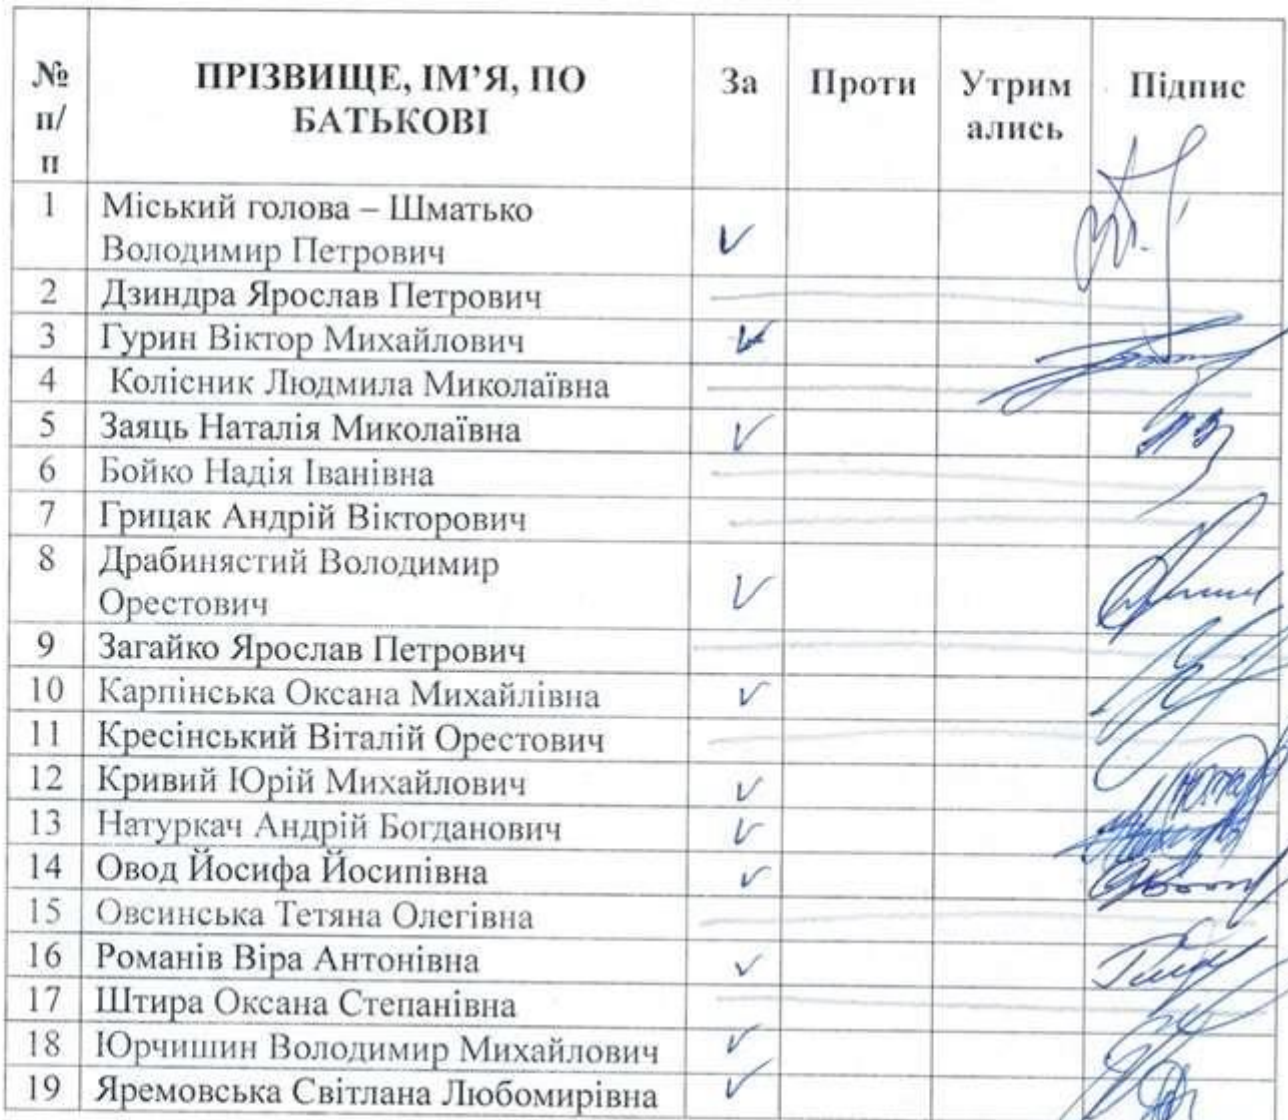 № п/п ПРІЗВИЩЕ, ІМ’Я, ПО БАТЬКОВІ За Проти Утрим ались Підпис
1 Міський голова – Шматько
Володимир Петрович
2 Дзиндра Ярослав Петрович
3 Гурин Віктор Михайлович
4 Колісник Людмила Миколаївна
5 Заяць Наталія Миколаївна
6 Бойко Надія Іванівна
7 Грицак Андрій Вікторович
8 Драбинястий Володимир
Орестович
9 Загайко Ярослав Петрович
10 Карпінська Оксана Михайлівна
11 Кресінський Віталій Орестович
12 Кривий Юрій Михайлович
13 Натуркач Андрій Богданович
14 Овод Йосифа Йосипівна
15 Овсинська Тетяна Олегівна
16 Романів Віра Антонівна
17 Штира Оксана Степанівна
18 Юрчишин Володимир Михайлович
19 Яремовська Світлана Любомирівна